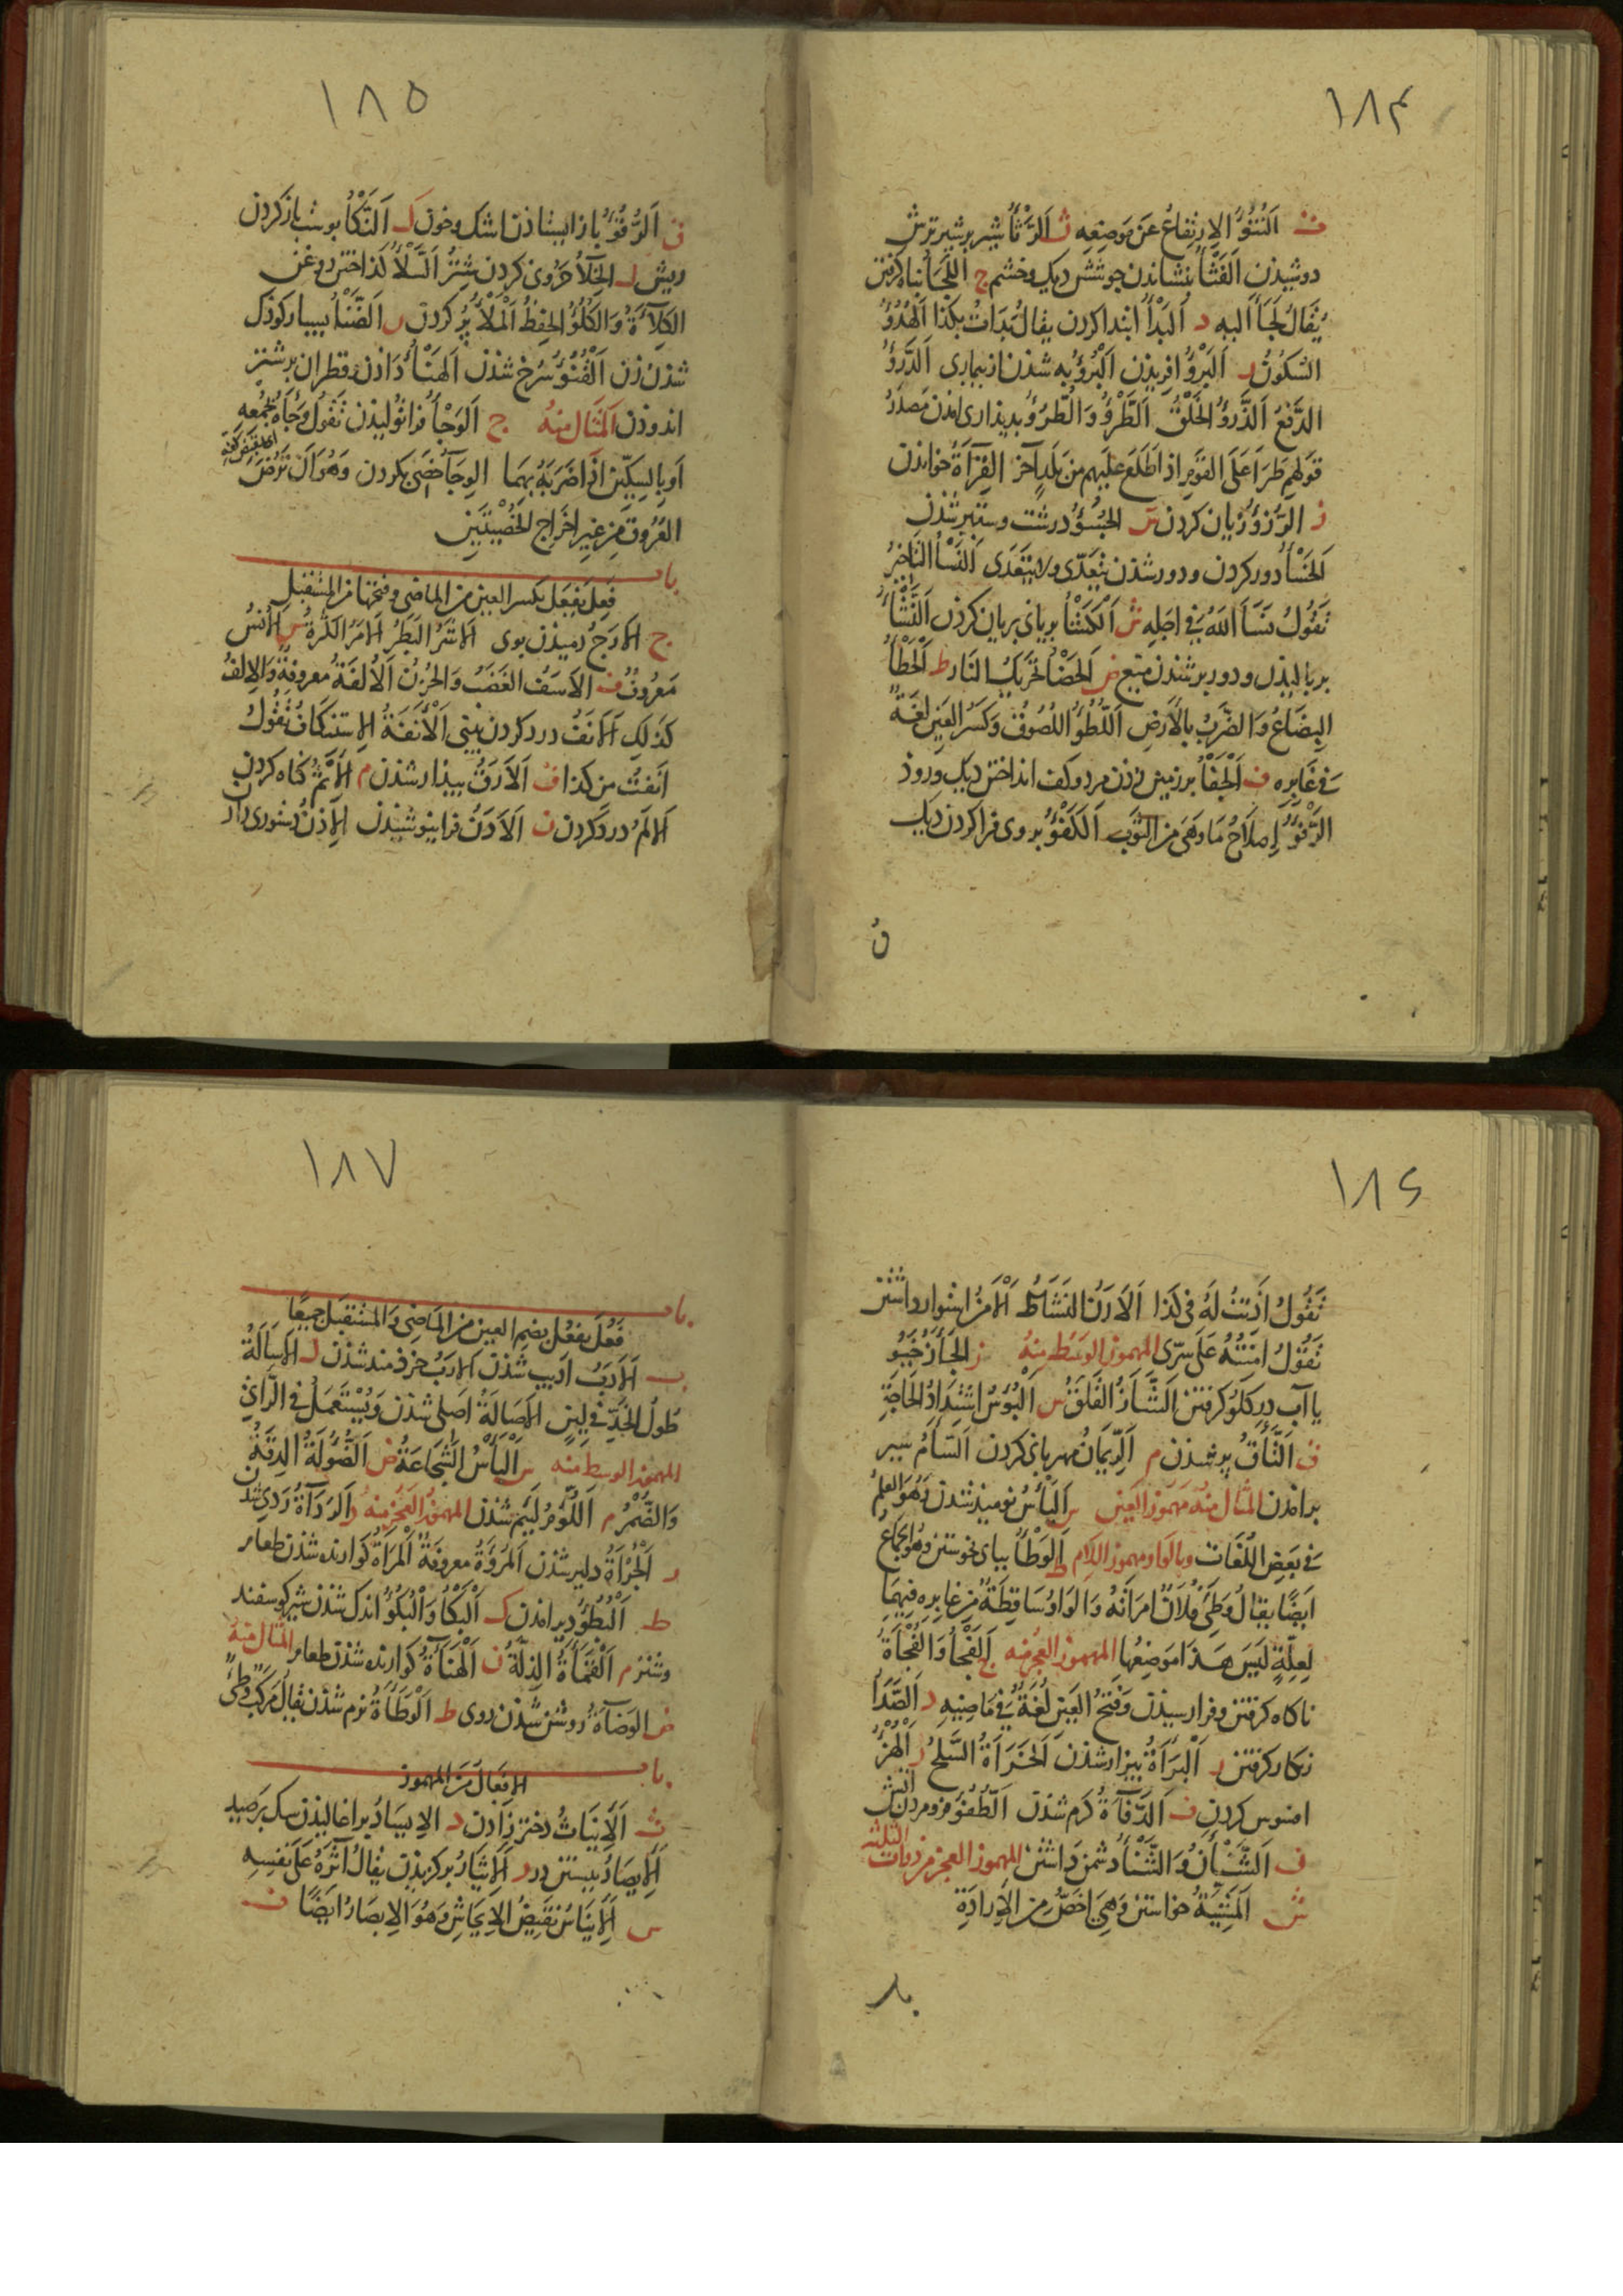 ١٨۴
ت اَلنُّتُوُّ الاِرْتِفاعُ عَن مَوضِعِه ث اَلرَّثْأُ شیر بر شیر ترش
دوشیذن اَلفَثْأُ بنشاندن جوشش دیک وخشم ج اللَّجَأُ بناه کرفتن
یُقَالُ لَجَأَ الَیهِ د اَلبَدْأُ ابتدا کردن یقالُ بَدَأتُ بکذا اَلهُدُوُّ
السُکُونُ ر اَلبَرْؤُ افریذن اَلْبُرْؤُ به شدن از بیماری اَلدَّرْؤُ
الدَّفْعُ اَلذَّرْؤُ الخَلْقُ اَلطَّرْؤُ وَالطُّرُؤُ بدیذار امدن مَصدَرُ
قولهم طَرَأَ عَلَى القَومِ اذا طَلَعَ عَلَيهِم مِنْ بَلَدٍ آخَرَ القِرَاءَةُ خواندن
ز الرُّزْؤُ زیان کردن س الجُسُؤُ درشت وستبر شذن
اَلخَسْأُ دور کردن و دور شذن یتعَدّی ولا یتَعَدَّی اَلنَّسْأُ التَاخیرُ
تَقُولُ نَسَأَ اللهُ فی اجَلِهِ ش اَلْکَشْأُ بریانی بریان کردن اَلنَّشْأُ
بربالیذن ودور بر شذن میغ ض اَلحَضْأُ تحریکُ النَار ط اَلْحَطْأُ
البِضَاعُ وَالضَّرْبُ بِالأرضِ اَللُّطُؤُ اللُصُوقُ وَکَسْرُ العَینِ لُغَةٌ
فی غَابِرِه ف اَلْجَفْأُ بر زمین زذن مرد وکف انداختن دیک ورود
الرَّفْؤُ اِصلَاحُ مَا وَهَی مِنَ الثَّوبِ اَلکَفْؤُ بروی فرا کردن دیک
ق
١٨۵
ق اَلرُّقُوُّ باز ایستاذن اشک وخون ک اَلنَّکْأُ بوست باز کردن
ریش ل الخِلَأُ حَرُونی کردن شتر اَلسَّلْأُ کذاختن روغن
الکَلَآءَةُ وَالکُلُوُّ الحِفظُ اَلْمَلْأُ بُر کردن ن اَلضَّنْأُ بسیار کوذک
شذن زن اَلْقُنُوُّ سُرخ شذن اَلهَنْأُ دَاذن وقطران بر شتر
اندوذن المِثَال مِنهُ ج اَلوَجْأُ فرا تولیذن تَقُولُ وَجَأَهُ بجُمْعِهِ
اَوبِالسِّکّینِ اِذَا ضَرَبَهُ بِهِمَا الوِجَآءُ خصی بکردن وَهُوَ اَنْ تُرَضَّ
العُرُوقُ مِن غیرِ اِخرَاجِ الخُصْیَتَینِ
باب
فَعِلَ یَفعَلُ بکسر العین من الماضی وفتحها من المستقبل
ج الأرَجُ دمیذن بوی الاشَرُ البَطَرُ الامَرُ الکثرةُ س الأنَسُ
مَعرُوفٌ ف الأسَفُ الغَضَبُ وَالحُزْنُ اَلأُلفَةُ مَعروفةٌ وَالإلفُ
کَذلِکَ الانَفُ درد کردن بینی اَلْأنَفَةُ الاِستنکَافُ تَقُولُ
اَنِفتُ مِن کذا ق الأرَقُ بیذار شذن م الإثْمُ کناه کردن
الالَمُ درد کردن ن الأذَنُ فرا نیوشیذن الإذنُ دستوری داذن
١٨۶
تَقُولُ اَذِنتُ لَهُ فی کَذا الأرَنُ النَشَاطُ الأمْنُ استوار داشتن
تَقُولُ اَمِنتُهُ عَلَی سِرّی المهموز الوسَط مِنهُ ز الجَأَزُ خَبُو
یا آب در کلو کرفتن اَلشَّأَزُ القَلَقُ س اَلْبُؤسُ اِشتِدَادُ الحَاجَةِ
ق اَلتَّأَقُ بر شذن م اَلرِّئمَانُ مهربانی کردن اَلسَّأَمُ سیر
برامدن المثال مِنهُ مَهمُوز العَین س اَلیَأسُ نومید شذن وَهُوَ العِلمُ
فی بَعضِ اللُغَات وبالواو مهموز اللام ط اَلوَطْأُ ببای بخوستن وَهُوَ الجِمَاعُ
اَیضًا یقالُ وَطِئَ فُلَانٌ امرَأتَهُ وَالوَاوُ سَاقِطَةٌ مِن غابِرِه فِیهِمَا
لِعِلّةٍ لَیسَ هَذَا مَوضِعُها المهموز العجز منه ج اَلفَجْأُ وَالفُجَاءَةُ
ناکاه کرفتن وفرا رسیذن وَفَتحُ العَین لُغَةٌ فی مَاضِیهِ د اَلصَّدَأُ
زنکار کرفتن ر اَلْبَرَاءَةُ بیزار شذن اَلخَرَاءَةُ السَّلحُ ز اَلْهُزْءُ
افسوس کردن ف اَلدَّفَاءَةُ کرم شذن اَلطُّفُؤُ فرو مردن آتش
ن اَلشَّنَآنُ وَالشَّنْأُ دشمن دَاشتن المهموز العجز من ذوات الثلثه
ش المَشِیَّةُ خواستن وَهِیَ اَخَصُّ مِنَ الإرَادَةِ
باب
١٨٧
باب
فَعُلَ یفعُل بضم العین من المَاضِی وَالمستقبَل جمیعًا
ب الأدَبُ ادیب شذن الارَبُ خردمند شذن ل الاسَالَةُ
طُولُ الخَدِّ فی لِینٍ الأصَالَةُ اصلی شذن وَیُستَعمَلُ فی الرَّأیِ
المهموز الوسط منه س اَلْبَأسُ الشَّجَاعَةُ ض اَلضُّؤُلَةُ الدِقَّةُ
وَالضُّمْرُ م اَللُّؤمُ لَئیم شذن المهموز العَجُز مِنهُ د اَلرَدَاءَةُ رَدی شذن
ر اَلْجُرْأَةُ دلیر شذن اَلمُرُوَّةُ معروفةٌ اَلْمَرَاءَةُ کوارنده شذن طعام
ط اَلْبُطُؤُ دیر امدن ک اَلْبَکْأُ وَالْبُکُؤُ اندک شذن شیر کوسفند
وشتر م اَلْقَمَاءَةُ الذِلّةُ ن اَلْهَنَاءَةُ کوارنده شذن طعام المثال منهُ
ض الوَضَآءَةُ روشن شذن روی ط اَلْوَطَاءَةُ نرم شذن یقالُ مَرکَبٌ وَطِئٌ
باب
الافعَال مِن المهموز
ث اَلْإینَاثُ دختر زاذن د الاِیسَادُ براغالیذن سک بر صید
اَلْإیصَادُ ببستن در ر اَلْإیثَارُ برکزیذن یقالُ آثَرَهُ عَلَی نَفسِهِ
س اَلْإینَاسُ نَقیضُ الإیحَاشِ وَهُوَ الاِبصَارُ ایضًا ف